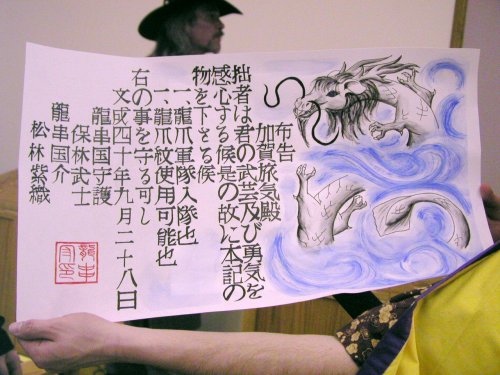 布告
加賀旅気殿
拙者は君の武芸及び勇気を
感心する候是の故に本記の
物を下さる候
一、龍爪軍隊入隊也
一、龍爪紋使用可能也
右の事を守る可し
文成四十年九月二十八日
龍串国守護
保林武士
龍串国介
松林紫織